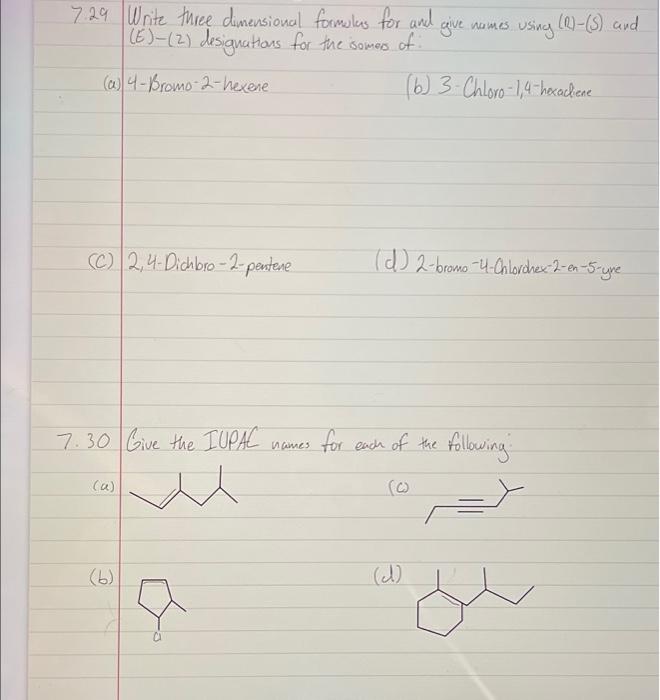 7.29 Write three dimensional formulas for and give names using (R)-(S) and
(E)-(Z) designations for the isomers of:
(a) 4-Bromo-2-hexene (b) 3-Chloro-1,4-hexadiene
(c) 2,4-Dichloro-2-pentene (d) 2-bromo-4-Chlorohex-2-en-5-yne
7.30 Give the IUPAC names for each of the following:
(a) (c)
(b) (d)
Cl